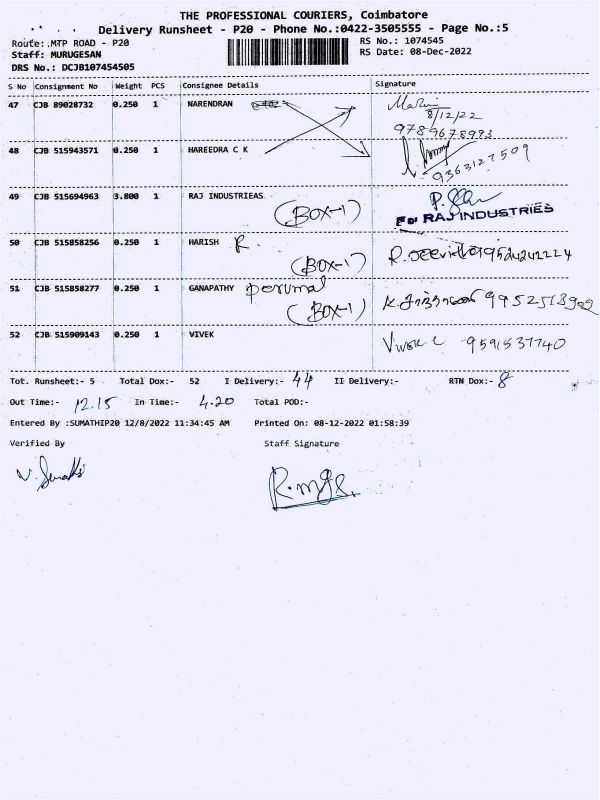 THE PROFESSIONAL COURIERS, Coimbatore
Delivery Runsheet - P20 - Phone No.:0422-3505555 - Page No.:5
Route: MTP ROAD - P20
RS No.: 1074545
Staff: MURUGESAN
RS Date: 08-Dec-2022
DRS No.: DCJB107454505
S No Consignment No Weight PCS Consignee Details Signature
47 CJB 89028732 0.250 1 NARENDRAN
8/12/22
9789678993
48 CJB 515943571 0.250 1 HAREEDRA C K
9363127509
49 CJB 515694963 3.800 1 RAJ INDUSTRIEAS
(BOX-1) For RAJ INDUSTRIES
50 CJB 515858256 0.250 1 HARISH R.
(BOX-1)
51 CJB 515858277 0.250 1 GANAPATHY perumal
(BOX-1)
52 CJB 515909143 0.250 1 VIVEK
9591537740
Tot. Runsheet:- 5 Total Dox:- 52 I Delivery:- 44 II Delivery:- RTN Dox:- 8
Out Time:- 12.15 In Time:- 4.20 Total POD:-
Entered By :SUMATHIP20 12/8/2022 11:34:45 AM Printed On: 08-12-2022 01:58:39
Verified By Staff Signature